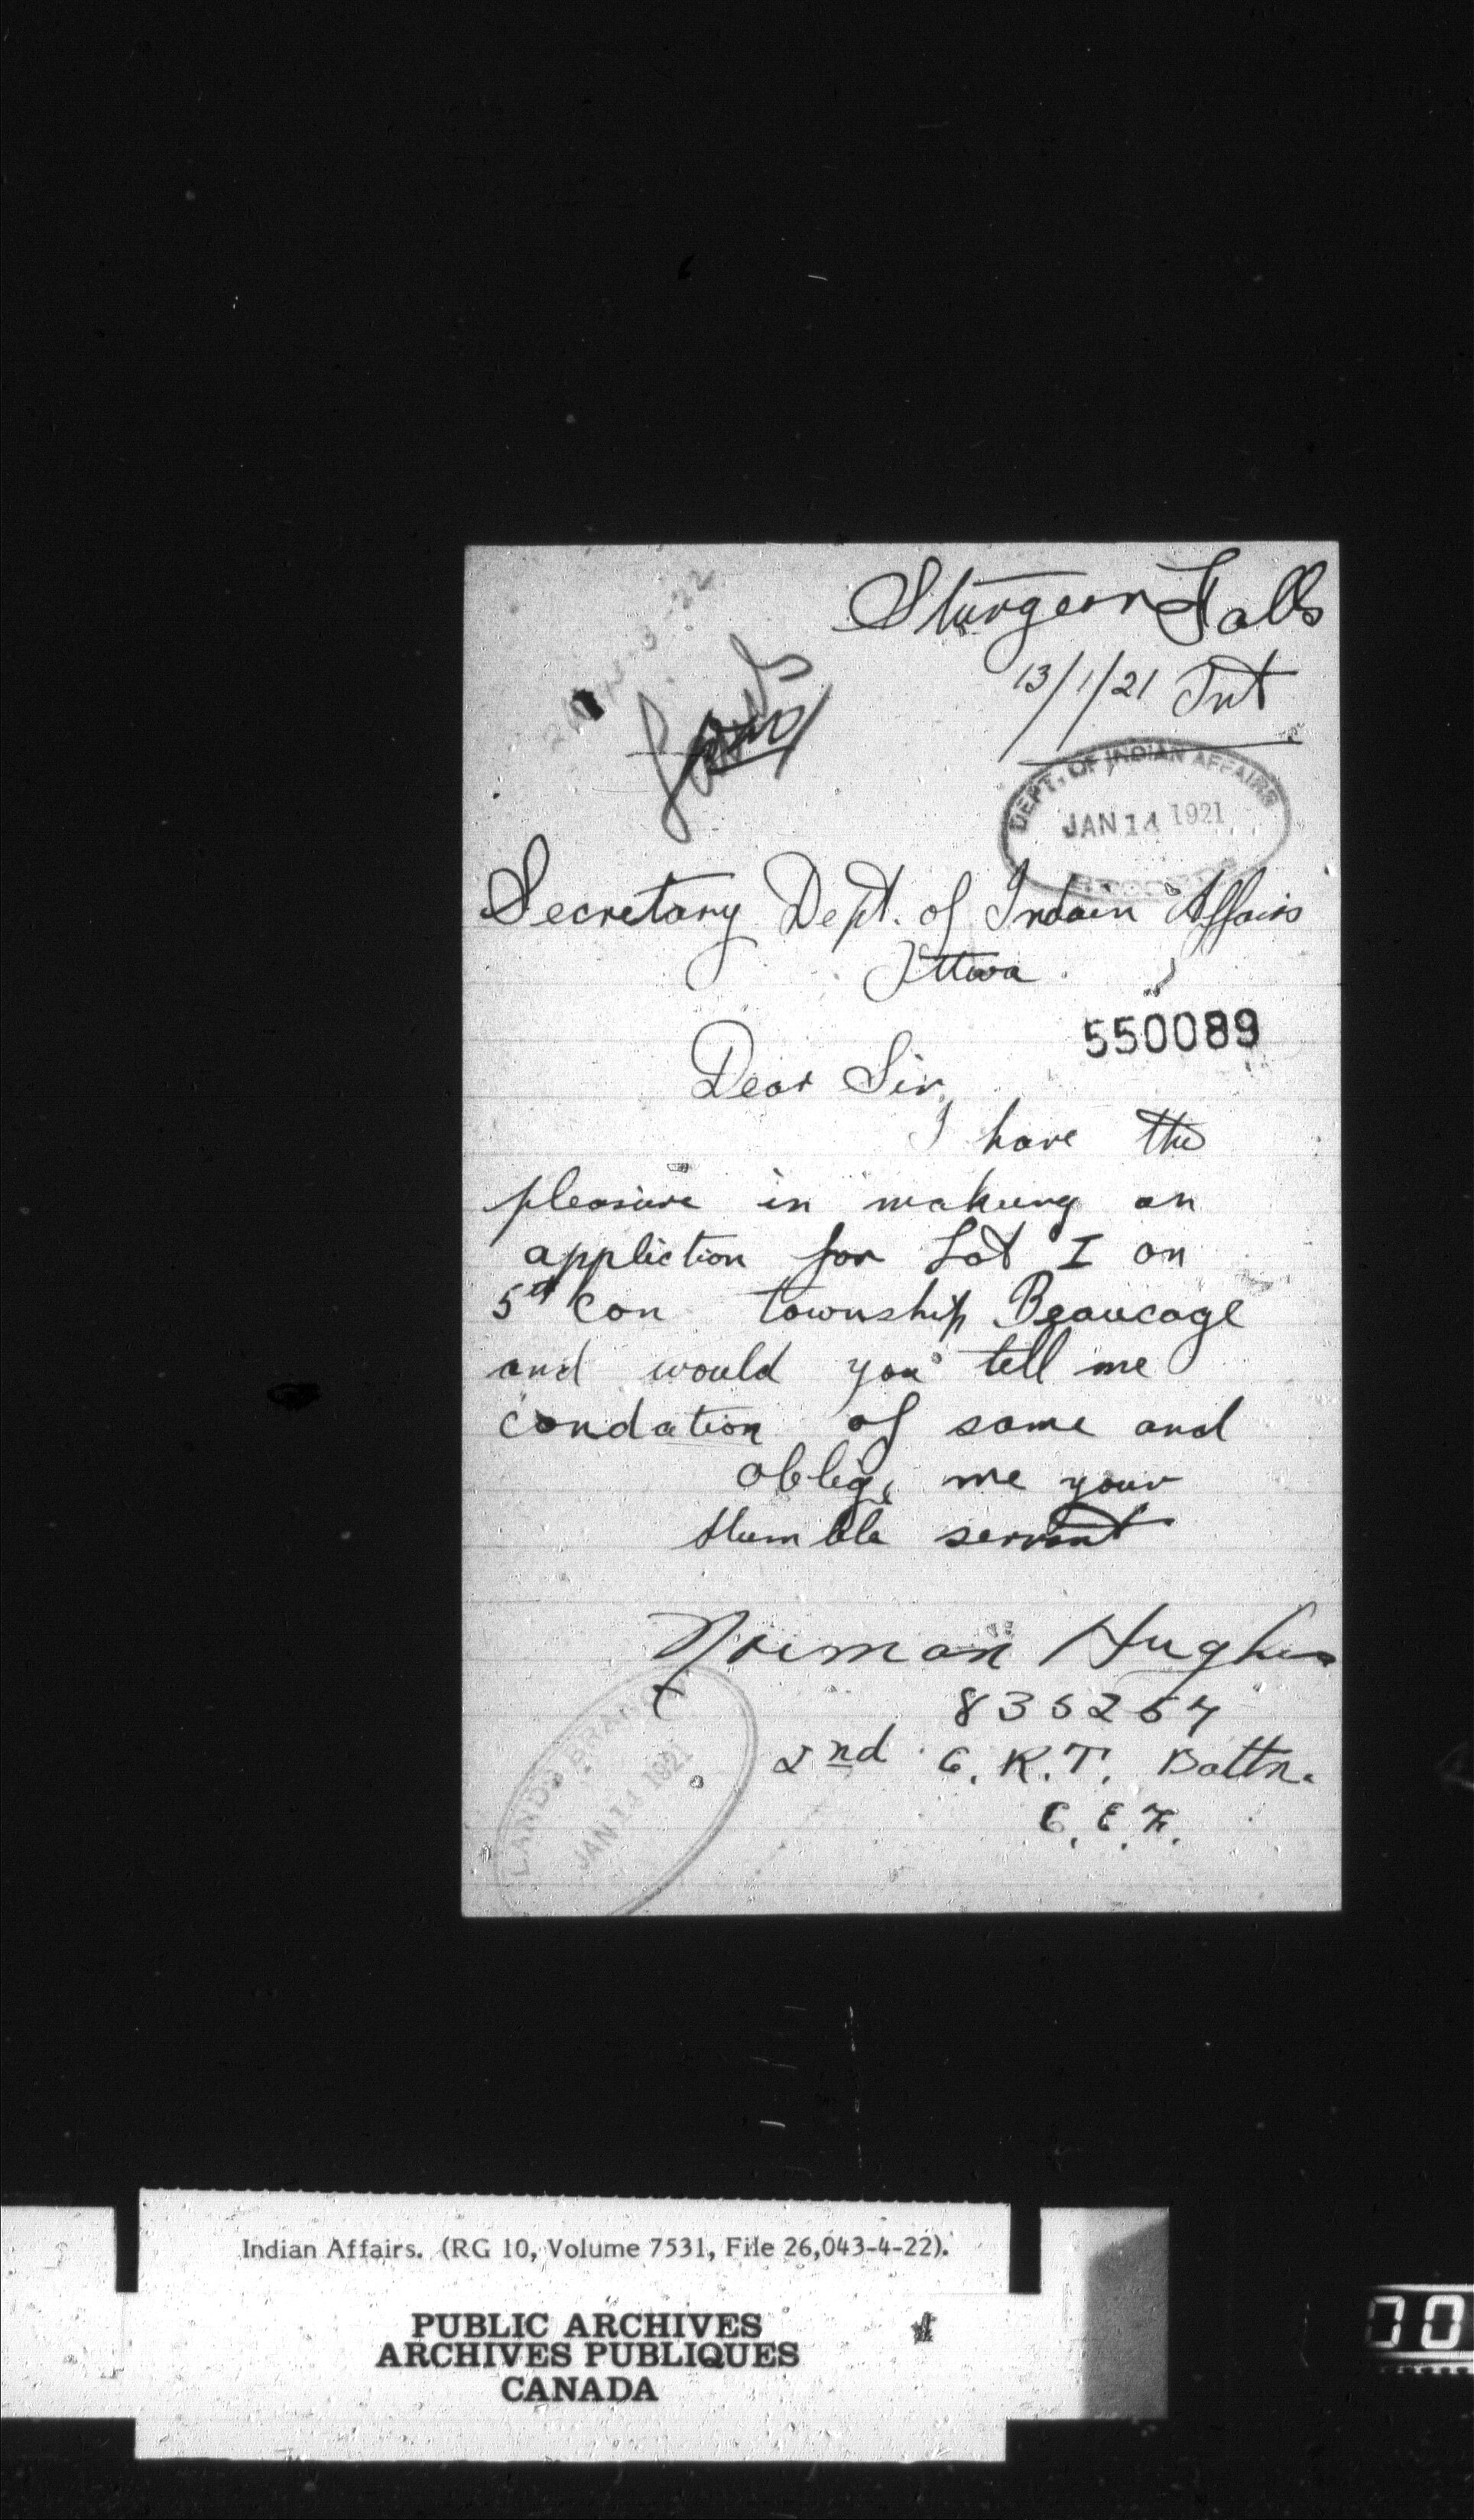 Sturgeon Falls
13/1/21 Ont
Lands
DEPT. OF INDIAN AFFAIRS
JAN 14 1921
Secretary Dept. of Indain Affairs
Ottwa.
550089
Dear Sir,
I have the
pleasure in making an
appliction for Lot I on
5th Con township Beaucage
and would you tell me
condation of same and
oblige me your
Humble servent
Norman Hughes
835257
2nd C.R.T. Battn.
C.E.F.
LANDS BRANCH
JAN 14 1921
Indian Affairs. (RG 10, Volume 7531, File 26,043-4-22).
PUBLIC ARCHIVES
ARCHIVES PUBLIQUES
CANADA